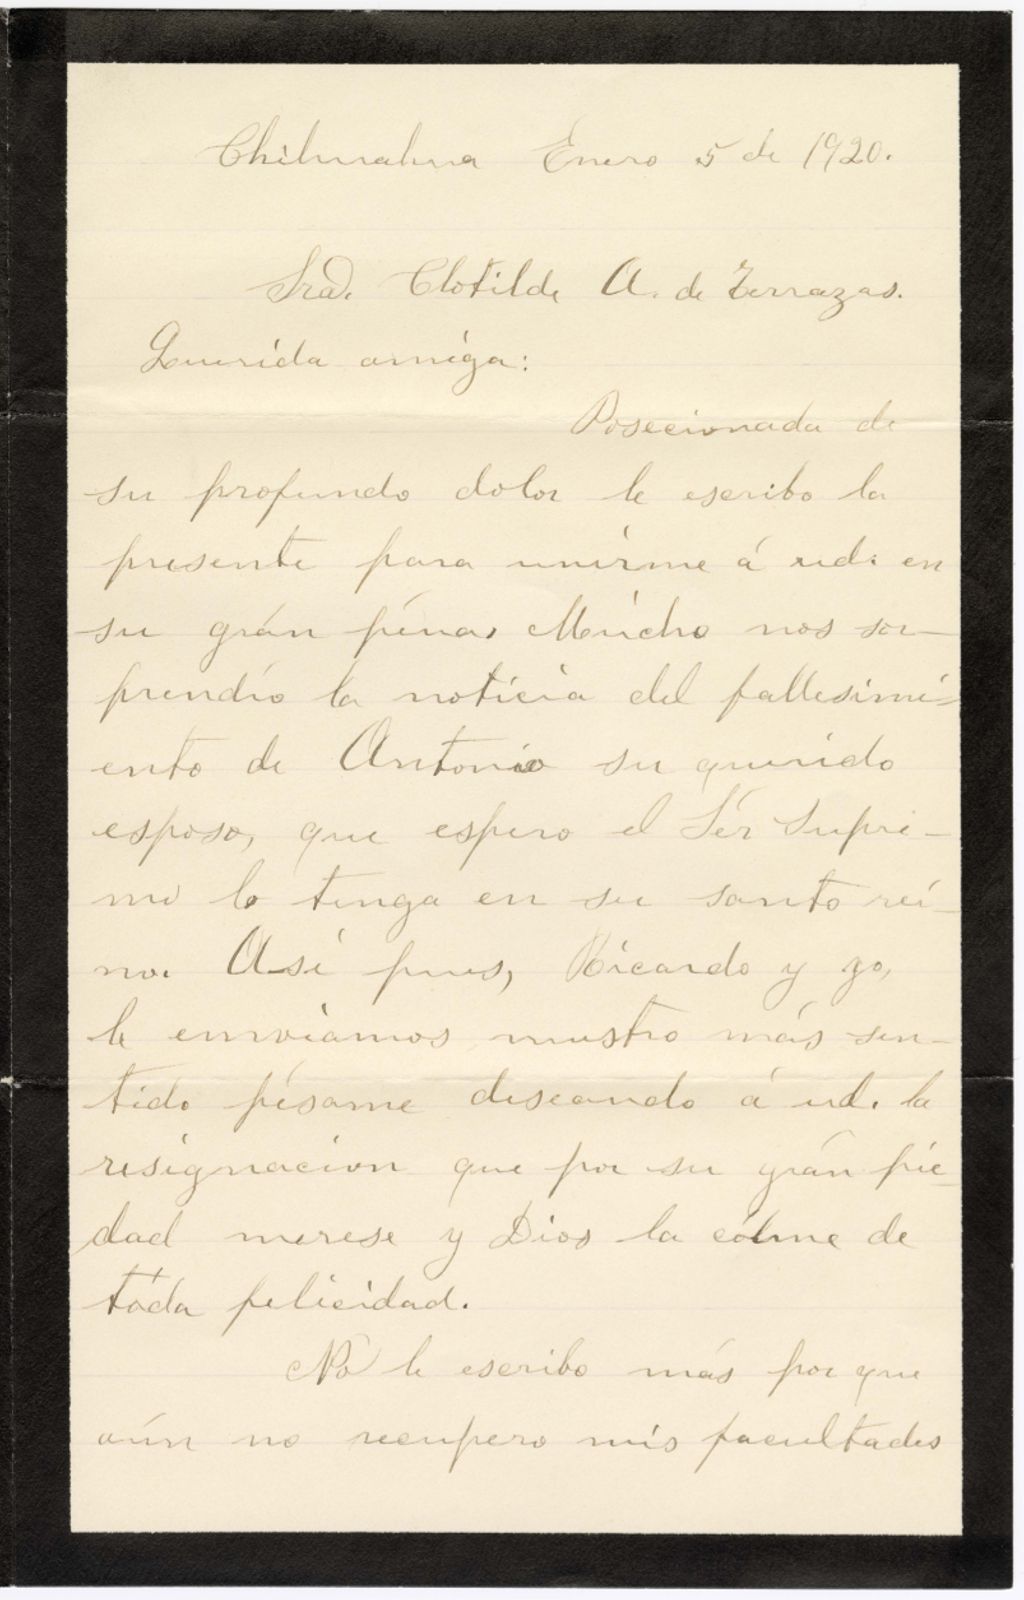 Chihuahua Enero 5 de 1920.
Sra. Clotilde A. de Terrazas.
Querida amiga:
Posecionada de
su profundo dolor le escribo la
presente para unirme á ud. en
su grán péna. Múcho nos sor-
prendío la notícia del fallesimi-
ento de Antonio su querido
esposo, que espero el Sér Supre-
mo lo tenga en su santo reí-
no. Así pues, Ricardo y yo,
le enviamos nuestro más sen-
tido pésame deseando á ud. la
resignacion que por su grán pie-
dad merese y Dios la cólme de
tóda felicidad.
Nó le escribo más por que
aún no recupero mis facultades